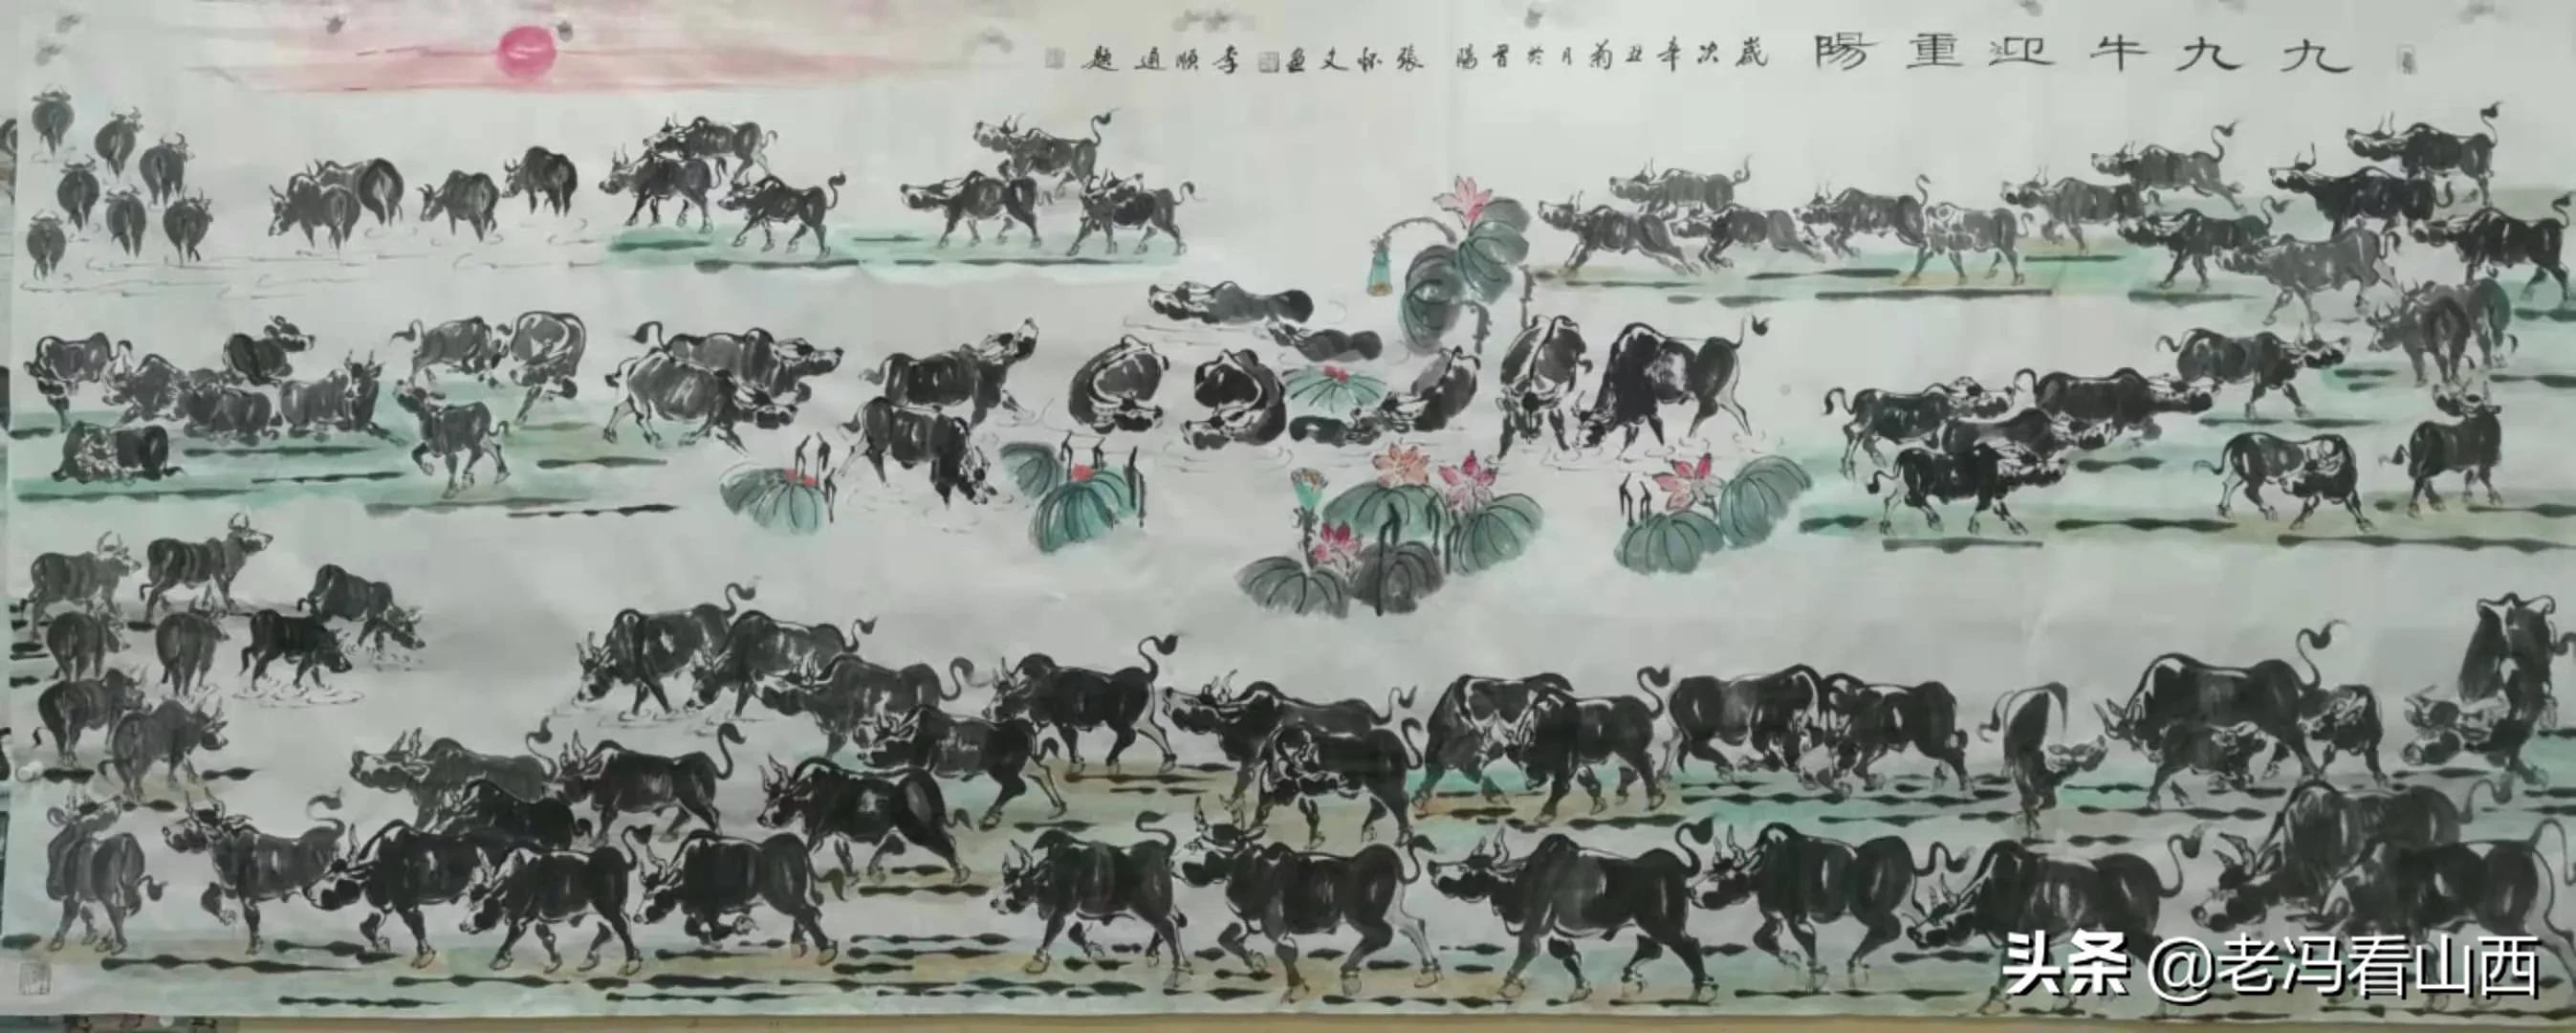 九九牛迎重陽
歲次辛丑菊月於晋陽 張怀文画 李順通題
头条 @老冯看山西